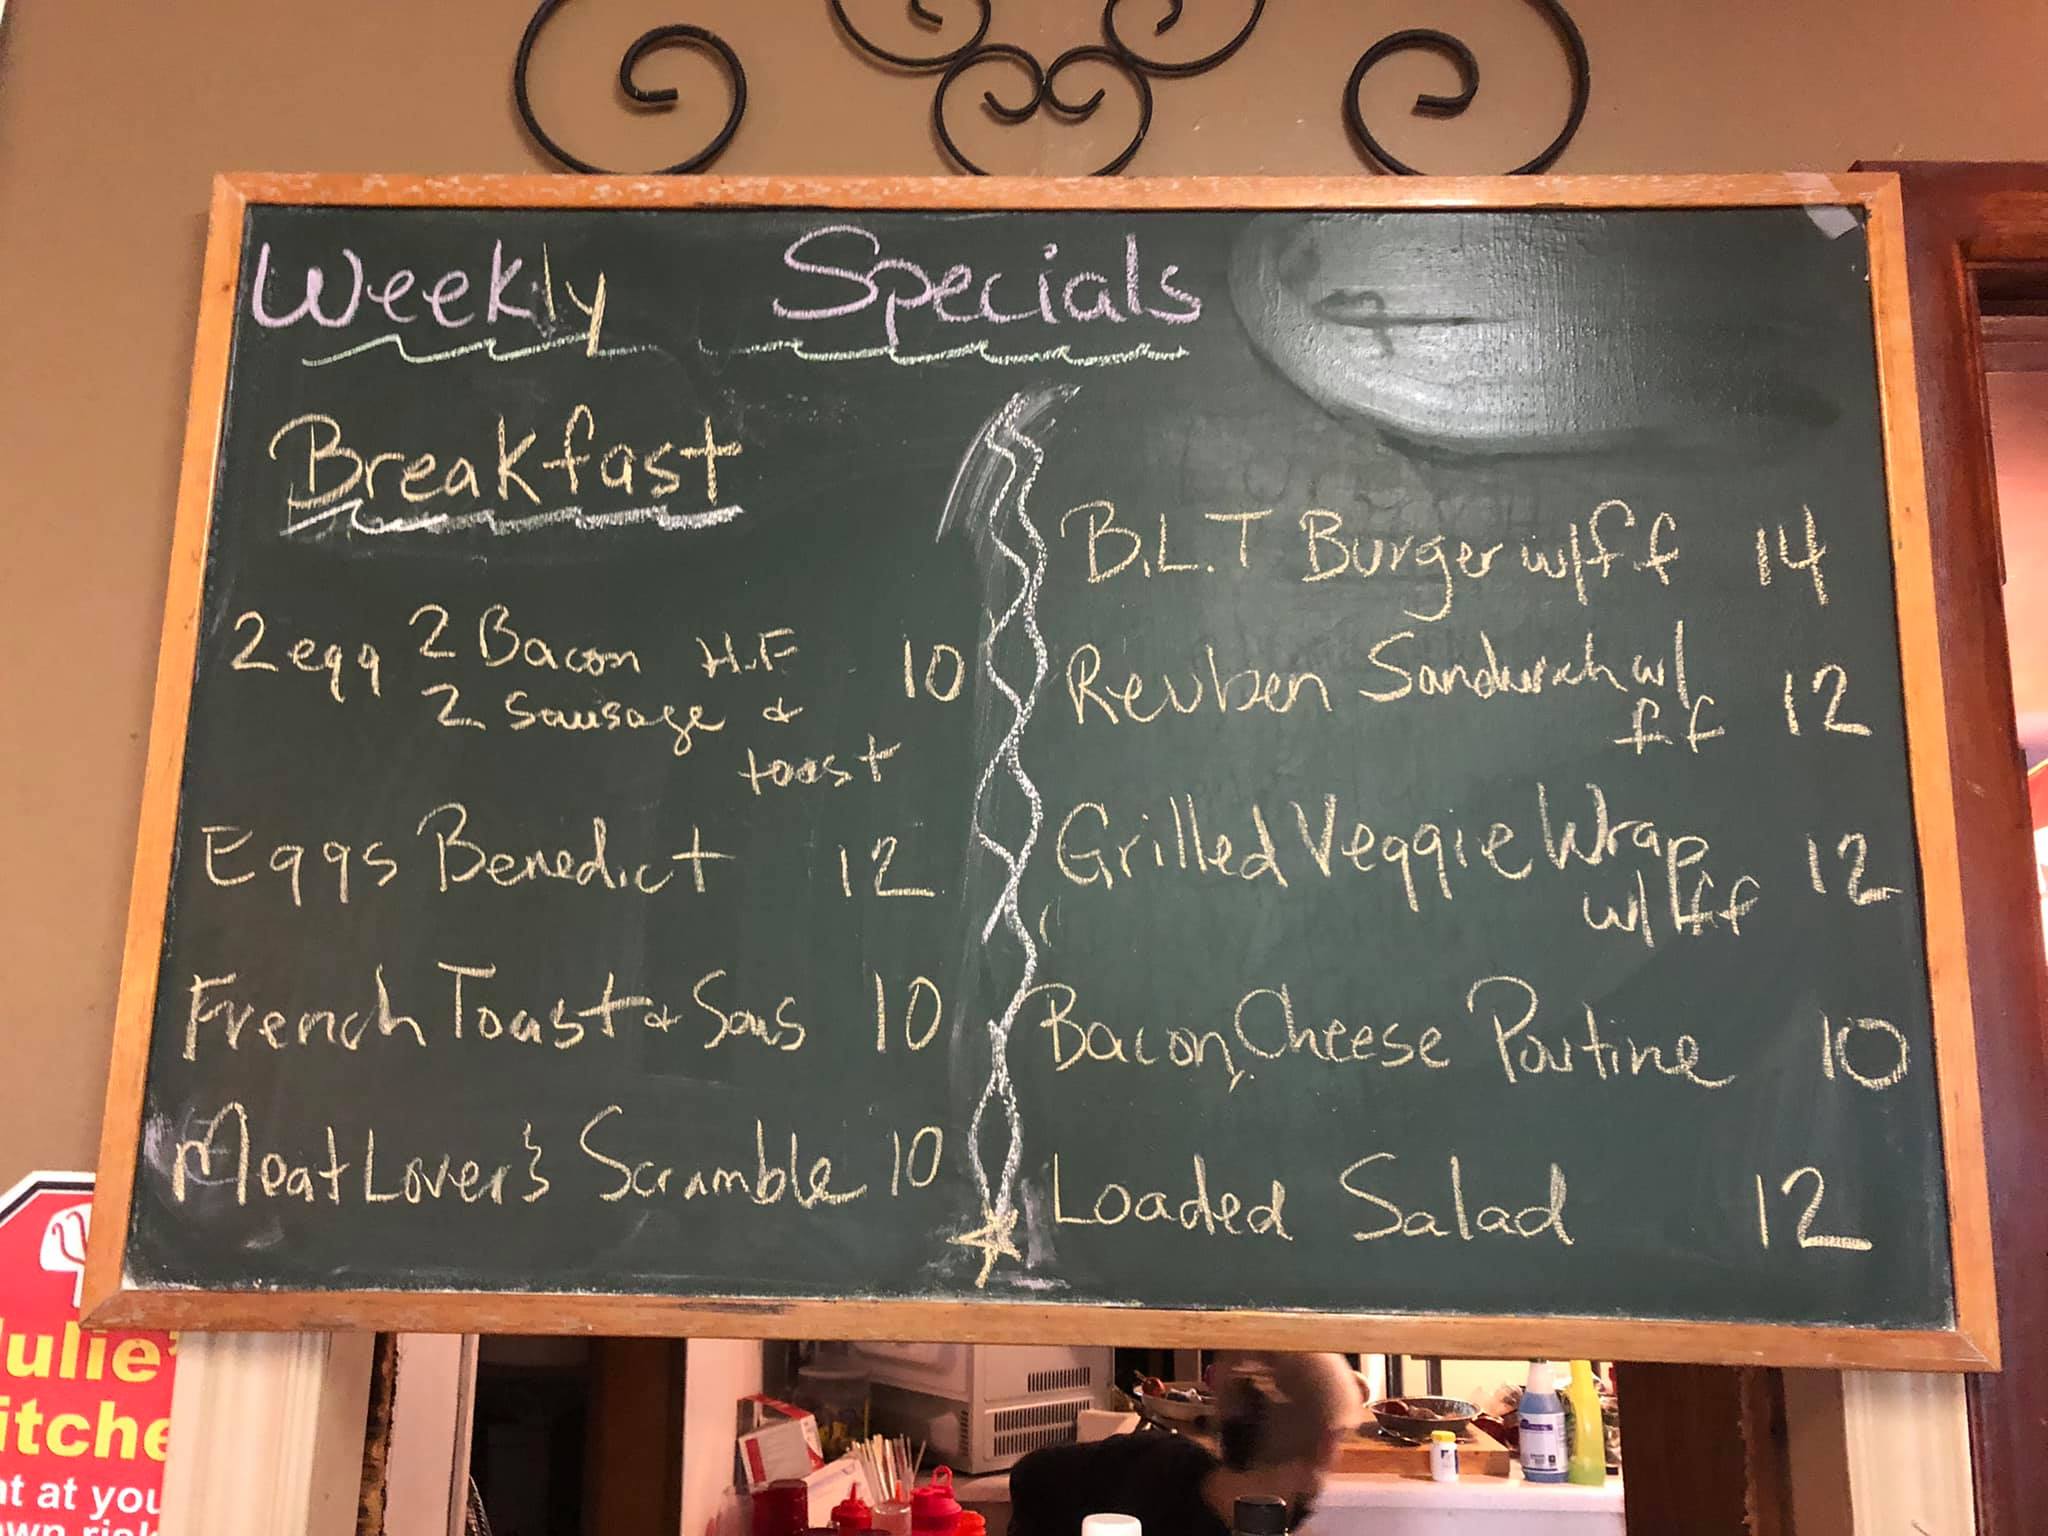 Weekly Specials
Breakfast
2 egg 2 Bacon H.F 10
2 Sausage &
toast
Eggs Benedict 12
French Toast & Saus 10
Meat Lover's Scramble 10
B.L.T Burger w/ff 14
Reuben Sandwich w/
ff 12
Grilled Veggie Wrap 12
w/ff
Bacon, Cheese Poutine 10
Loaded Salad 12
ulie'
itche
at at you
own risk